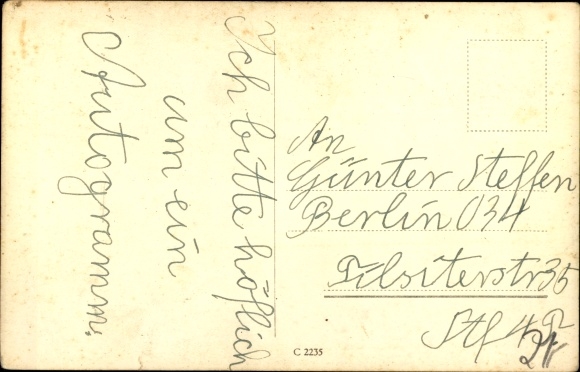 Ich bitte höflich
um ein
Autogramm.
An
Günter Steffen
Berlin O34
Tilsiterstr 35
Stf 4
C 2235